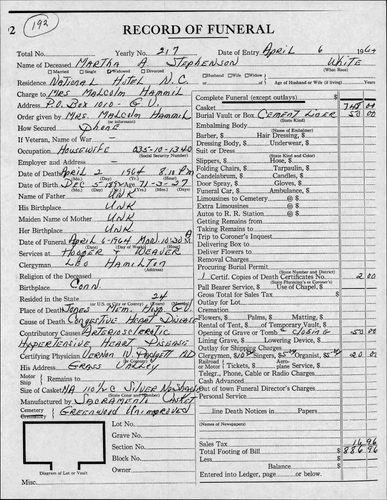 192
2 RECORD OF FUNERAL
Total No. Yearly No. 217 Date of Entry April 6 1964
Name of Deceased Martha A Stephenson White
(What Race)
Married Single Widowed Divorced Husband Wife Widow Age of Husband or Wife (if living) Years
Residence National Hotel N.C.
Charge to Mrs Malcolm Hammil
Address P.O. Box 1010 - G.V.
Order given by Mrs. Malcolm Hammil
(or informant)
How Secured Phone
If Veteran, Name of War
Occupation Housewife 035-10-1340
(Social Security Number)
Employer and Address
Date of Death April 2 1964 8:10 P.M.
Date of Birth Dec - 5 - Age 71-3-27
Name of Father Unk
His Birthplace Unk
Maiden Name of Mother Unk
Her Birthplace Unk
Date of Funeral April 6-1964 Mon. 10:30 A.M.
Services at Hooper & Weaver
Clergyman Leo Hamilton
Religion of the Deceased
Birthplace Conn.
Resided in the State 24
(or U.S. or City or County)
Place of Death Jones Mem. Hosp G.V.
Cause of Death Congestive Heart Disease
Contributory Causes Arteriosclerotic
Hypertensive Heart Disease
Certifying Physician Vernon W. Padgett MD
His Address Grass Valley
Motor Ship Remains to
Size of Casket NA
Manufactured by Sacramento Casket
Cemetery Greenwood Unimproved
Lot No.
Grave No.
Section No.
Block No.
Owner
Diagram of Lot or Vault
Misc.
Complete Funeral (except outlays) $
Burial Vault or Box Cement Liner 50 00
(State Kind)
Embalming Body
(Name of Embalmer)
Barber, $ Hair Dressing, $
Dressing Body, $ Underwear, $
Suit or Dress
(State Kind and Color)
Slippers, $ Hose, $
Folding Chairs, $ Tarpaulin, $
Candelabrum, $ Candles, $
Door Spray, $ Gloves, $
Funeral Car, $ Ambulance, $
Limousines to Cemetery @ $
Extra Limousines @ $
Autos to R. R. Station @ $
Getting Remains from
Taking Remains to
Trip to Coroner's Inquest
Delivering Box to
Deliver Flowers to
Removal Charges
Procuring Burial Permit
(State Number and District)
1 Certif. Copies of Death Certificate No. 2 00
(State Physician's or Coroner's)
Pall Bearer Service, $ Use of Chapel, $
Gross Total for Sales Tax $
Outlay for Lot
Cremation
Flowers, $ Palms, $ Matting, $
Rental of Tent, $ of Temporary Vault, $
Opening of Grave or Tomb 50 00
Lining Grave, $ Lowering Device, $
Outlay for Shipping Charges
Clergymen, $10 Singers, $5 Organist, $5 20 00
Railroad or Motor Tickets, $ Aeroplane Service, $
Telgr., Phone, Cable or Radio Charges
Cash Advanced
Out of town Funeral Director's Charges
Personal Service
line Death Notices in Papers
(Names of Newspapers)
Sales Tax 16 96
Total Footing of Bill $ 886 96
Less $
Balance $
Entered into Ledger, page or below.